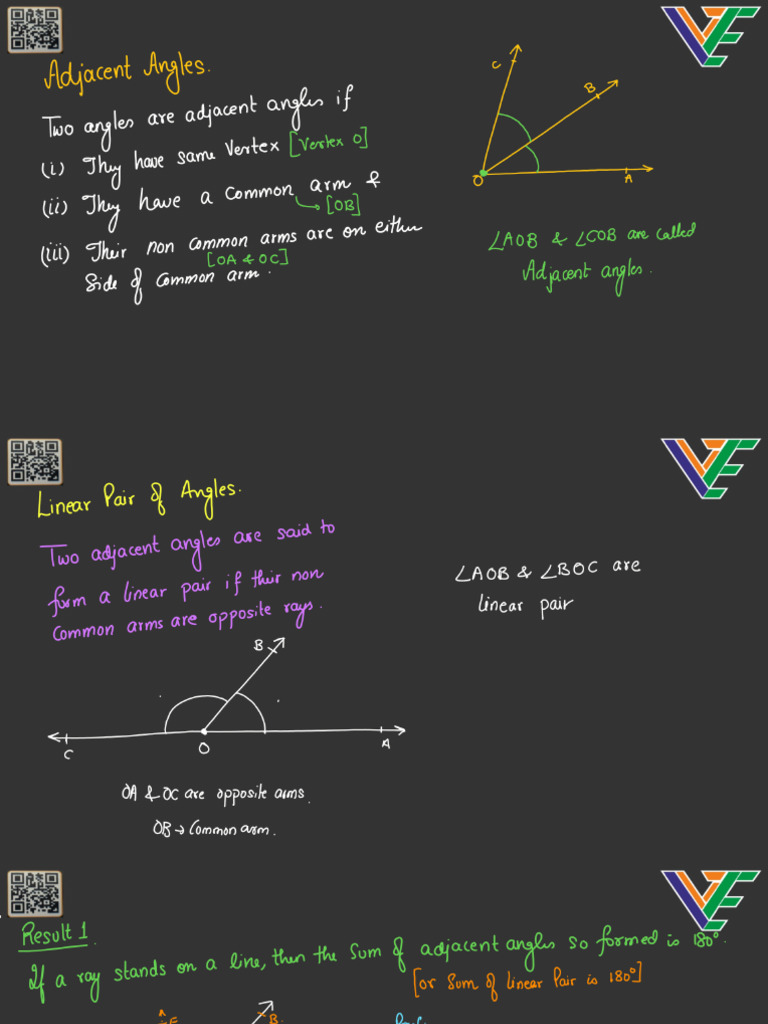 Adjacent Angles.
Two angles are adjacent angles if
(i) They have same Vertex [Vertex O]
(ii) They have a common arm &
[OB]
(iii) Their non common arms are on either
[OA & OC]
side of common arm.
C
B
O
A
∠AOB & ∠COB are called
Adjacent angles.
Linear Pair of Angles.
Two adjacent angles are said to
form a linear pair if their non
common arms are opposite rays.
∠AOB & ∠BOC are
linear pair
B
C
O
A
OA & OC are opposite arms.
OB → Common arm.
Result 1.
If a ray stands on a line, then the sum of adjacent angles so formed is 180°.
[or Sum of Linear Pair is 180°]
E
B